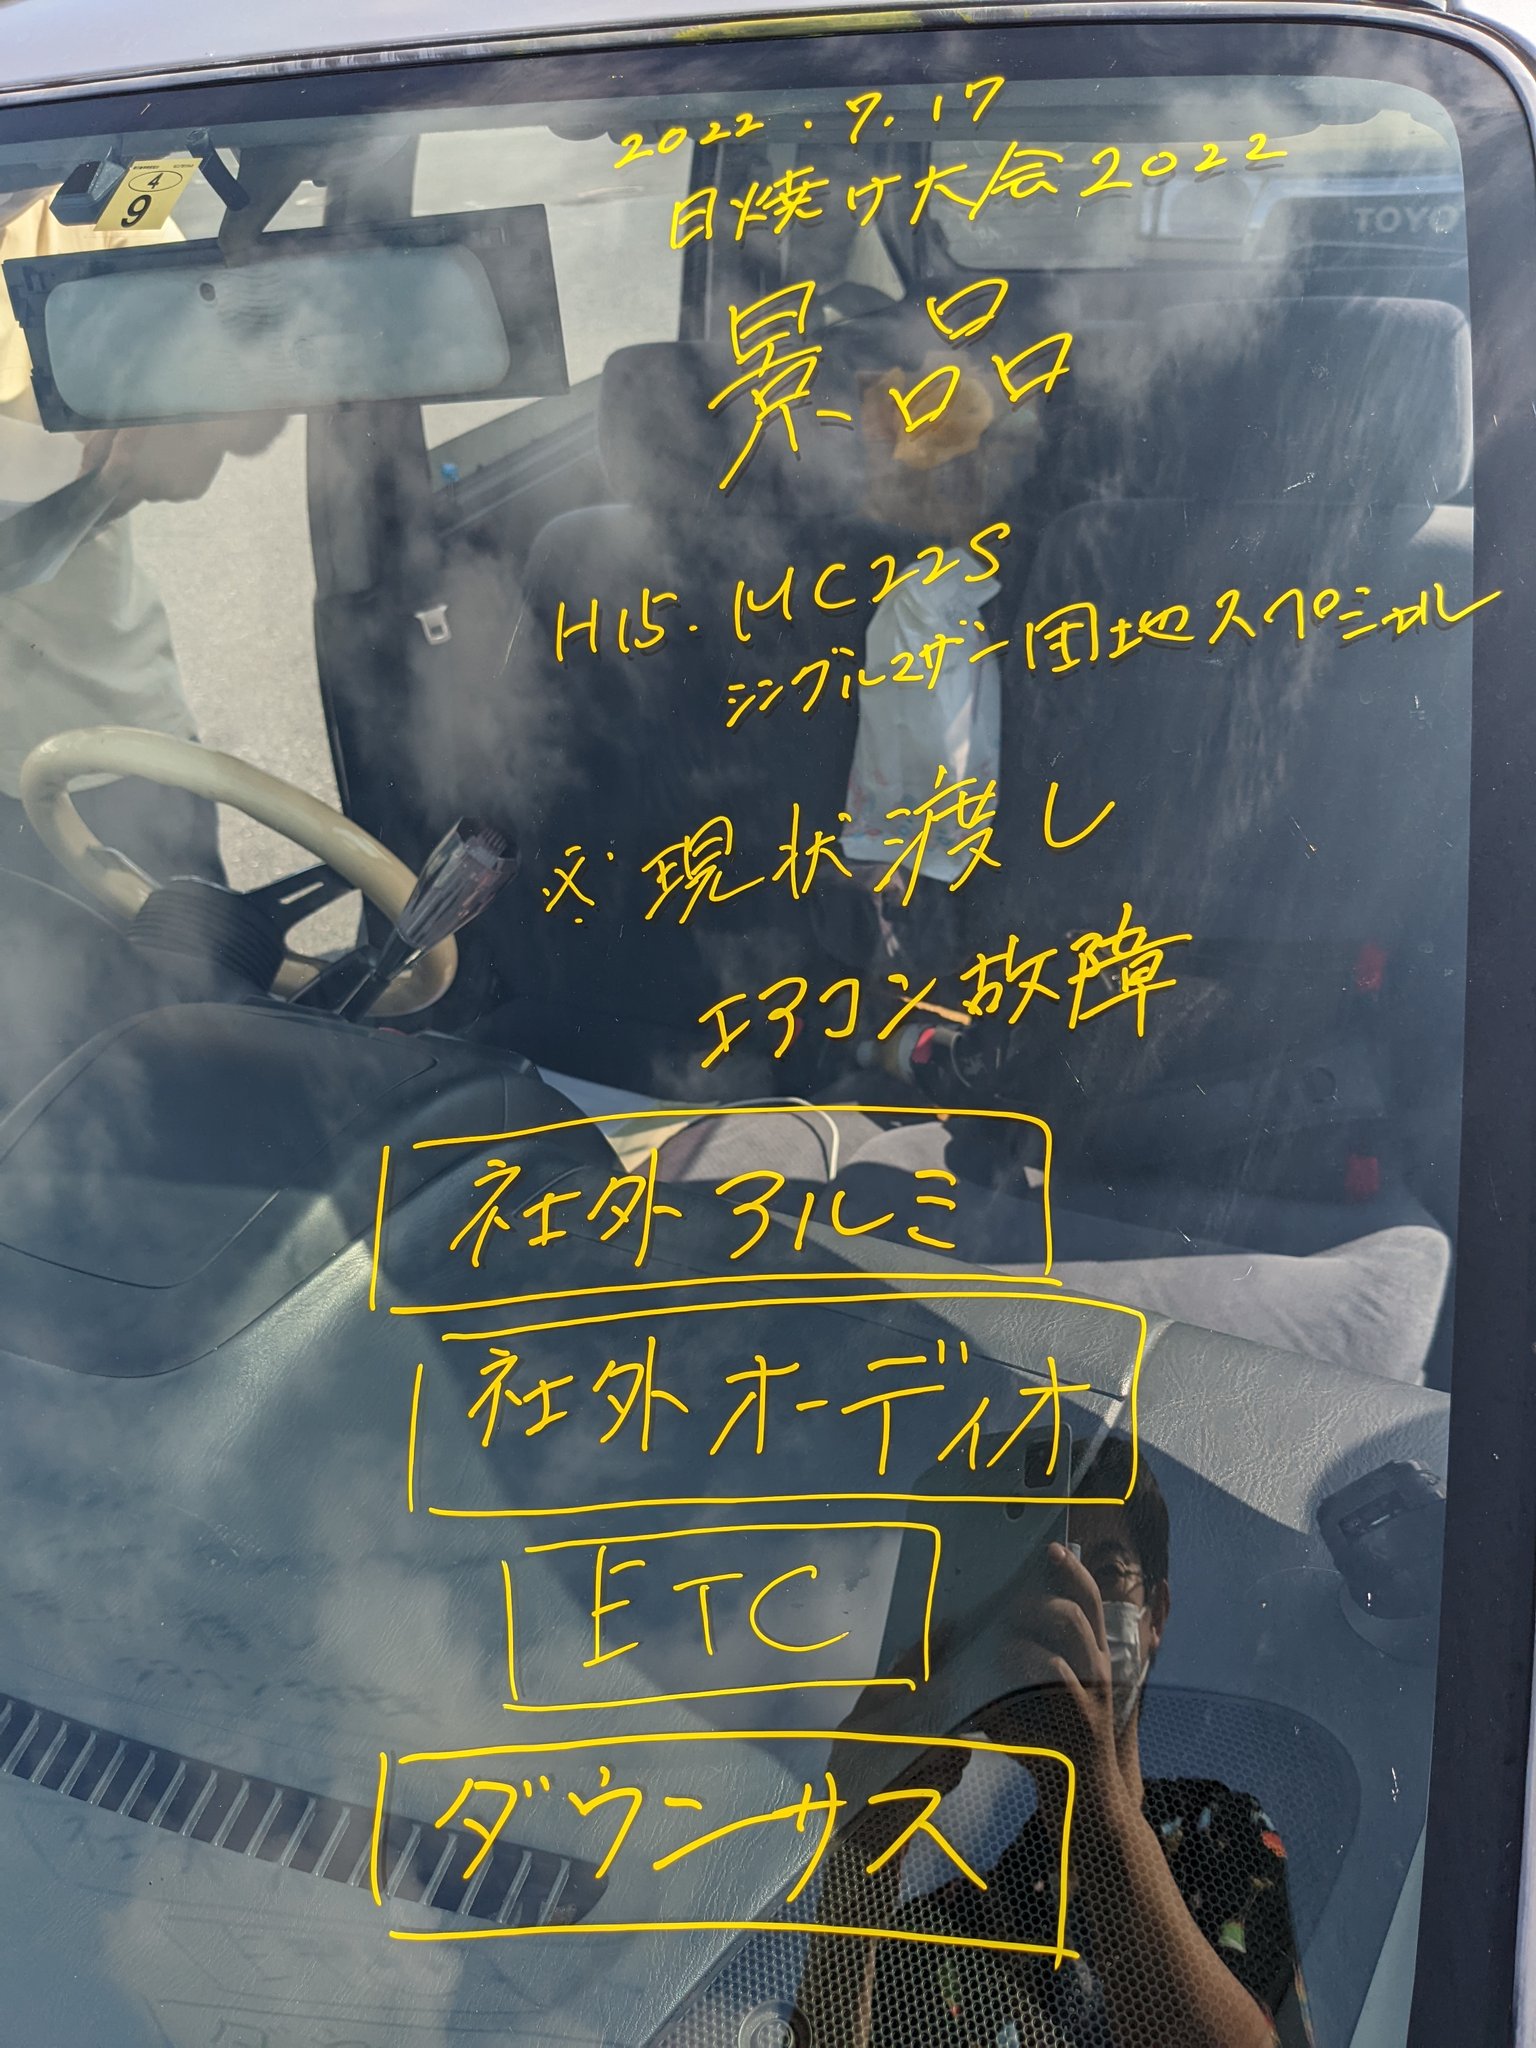 2022.7.17
日焼け大会2022
景品
H15. MC22S
シングルマザー団地スペシャル
※現状渡し
エアコン故障
社外アルミ
社外オーディオ
ETC
ダウンサス
4
9
TOYO